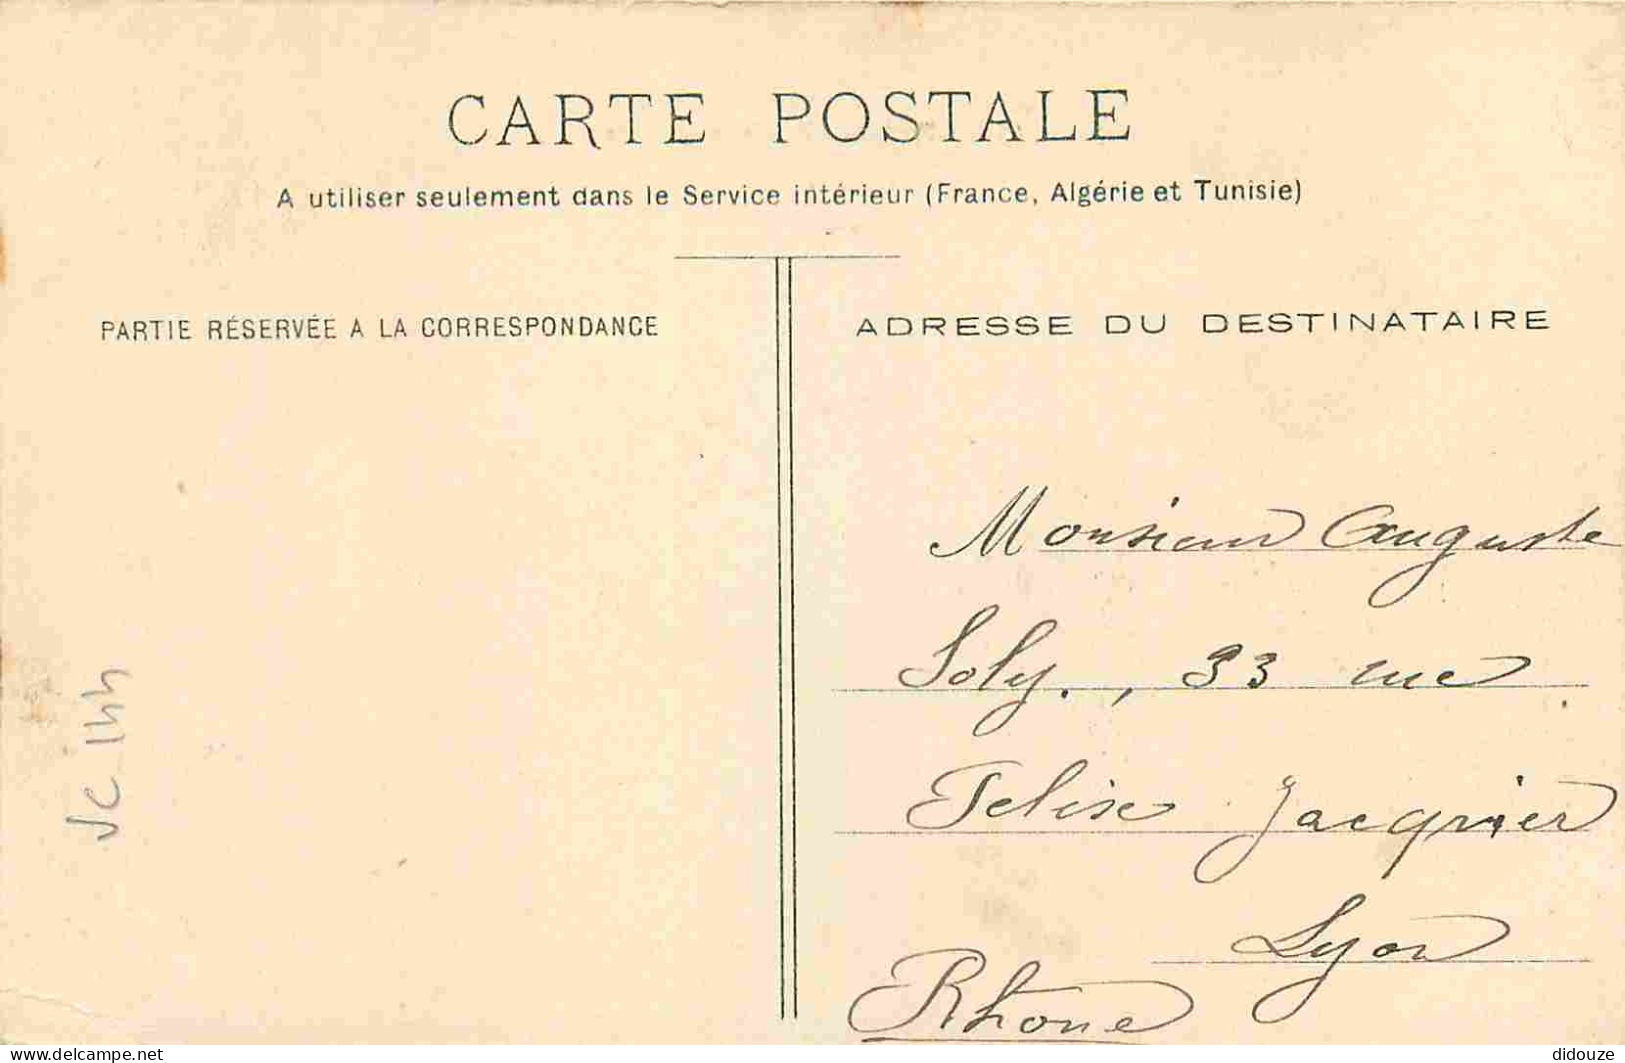 CARTE POSTALE
A utiliser seulement dans le Service intérieur (France, Algérie et Tunisie)
PARTIE RÉSERVÉE A LA CORRESPONDANCE
ADRESSE DU DESTINATAIRE
Monsieur Auguste
Soly., 33 rue
Felise Jacquier
Lyon
Rhône
delcampe.net
didouze